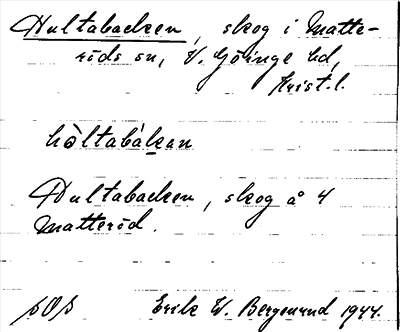 Hultabacken, skog i Matte-
röds sn, V. Göinge hd,
Krist. l.
hòltabákan
Hultabacken, skog å 4
Matteröd.
Erik W. Bergenrud 1944.